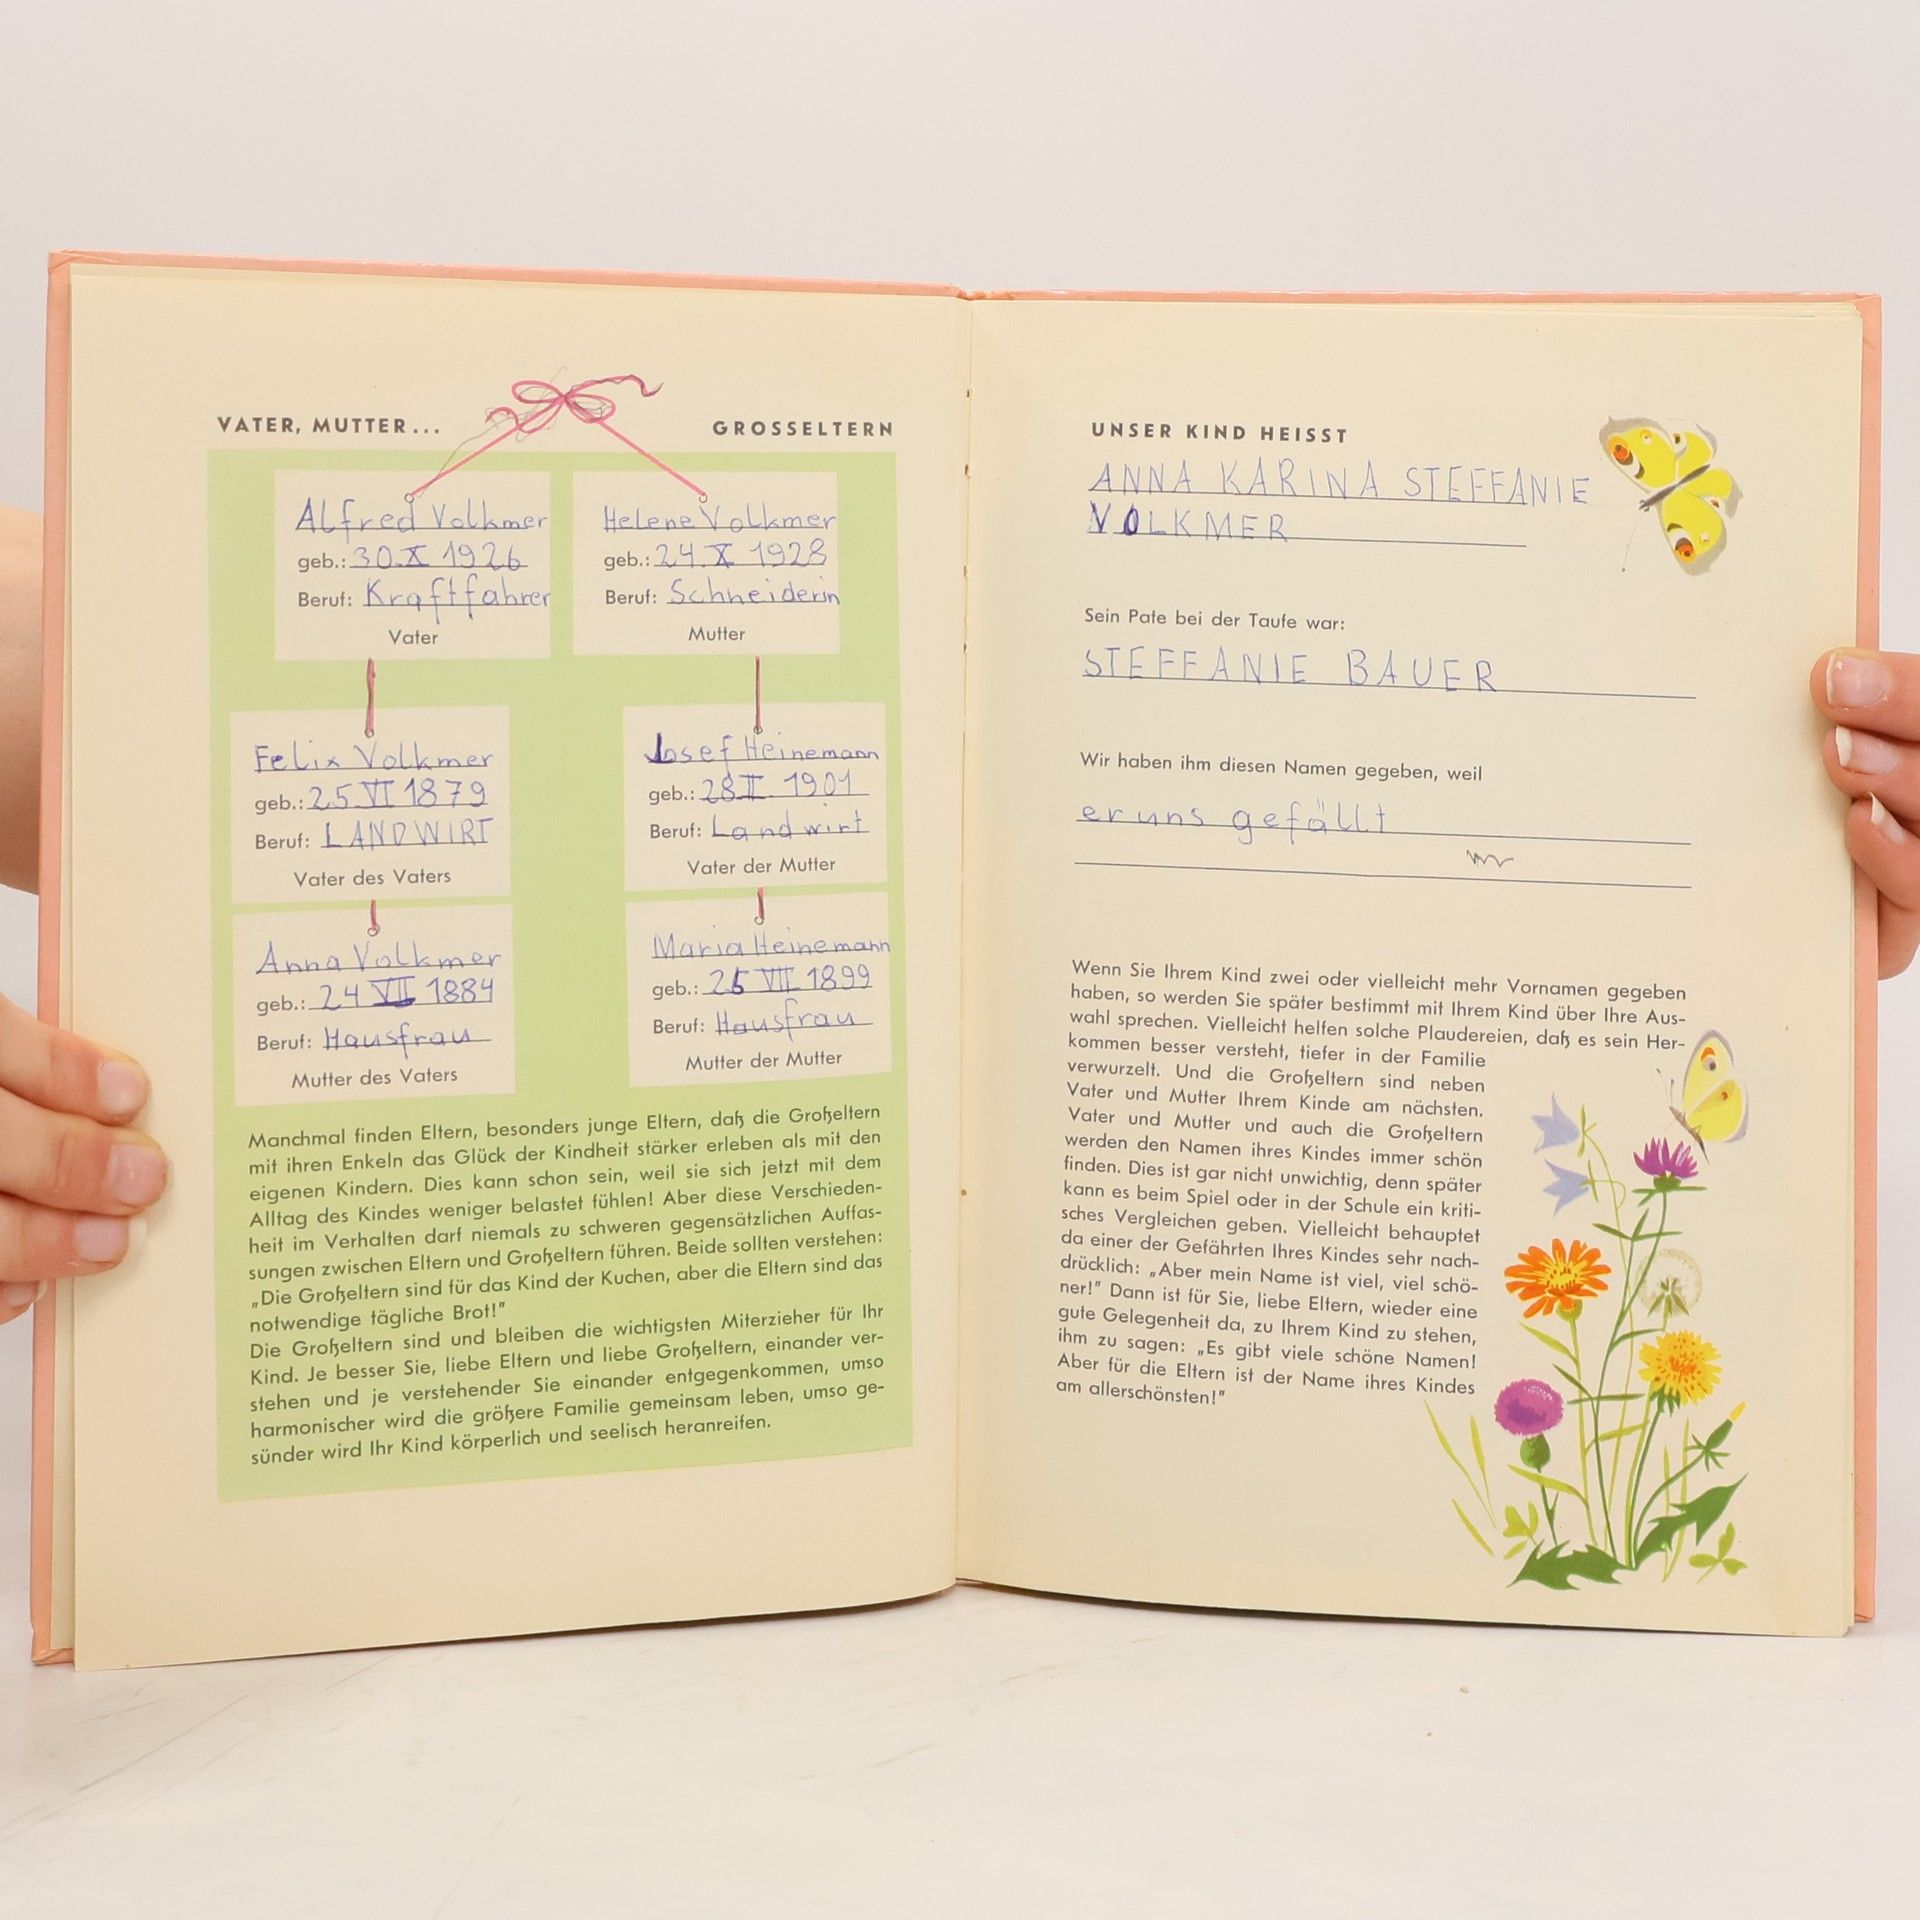 VATER, MUTTER...
GROSSELTERN
Alfred Volkmer
geb.: 30. X 1926
Beruf: Kraftfahrer
Vater
Helene Volkmer
geb.: 24. X 1928
Beruf: Schneiderin
Mutter
Felix Volkmer
geb.: 25. VI 1879
Beruf: LANDWIRT
Vater des Vaters
Josef Heinemann
geb.: 28 II. 1901
Beruf: Landwirt
Vater der Mutter
Anna Volkmer
geb.: 24 VII 1884
Beruf: Hausfrau
Mutter des Vaters
Maria Heinemann
geb.: VII 1899
Beruf: Hausfrau
Mutter der Mutter
Manchmal finden Eltern, besonders junge Eltern, daß die Großeltern
mit ihren Enkeln das Glück der Kindheit stärker erleben als mit den
eigenen Kindern. Dies kann schon sein, weil sie sich jetzt mit dem
Alltag des Kindes weniger belastet fühlen! Aber diese Verschieden-
heit im Verhalten darf niemals zu schweren gegensätzlichen Auffas-
sungen zwischen Eltern und Großeltern führen. Beide sollten verstehen:
„Die Großeltern sind für das Kind der Kuchen, aber die Eltern sind das
notwendige tägliche Brot!"
Die Großeltern sind und bleiben die wichtigsten Miterzieher für Ihr
Kind. Je besser Sie, liebe Eltern und liebe Großeltern, einander ver-
stehen und je verstehender Sie einander entgegenkommen, umso
harmonischer wird die größere Familie gemeinsam leben, umso ge-
sünder wird Ihr Kind körperlich und seelisch heranreifen.
UNSER KIND HEISST
ANNA KARINA STEFFANIE
VOLKMER
Sein Pate bei der Taufe war:
STEFFANIE BAUER
Wir haben ihm diesen Namen gegeben, weil
er uns gefällt
Wenn Sie Ihrem Kind zwei oder vielleicht mehr Vornamen gegeben
haben, so werden Sie später bestimmt mit Ihrem Kind über Ihre Aus-
wahl sprechen. Vielleicht helfen solche Plaudereien, daß es sein Her-
kommen besser versteht, tiefer in der Familie
verwurzelt. Und die Großeltern sind neben
Vater und Mutter Ihrem Kinde am nächsten.
Vater und Mutter und auch die Großeltern
werden den Namen ihres Kindes immer schön
finden. Dies ist gar nicht unwichtig, denn später
kann es beim Spiel oder in der Schule ein kriti-
sches Vergleichen geben. Vielleicht behauptet
da einer der Gefährten Ihres Kindes sehr nach-
drücklich: „Aber mein Name ist viel, viel schö-
ner!" Dann ist für Sie, liebe Eltern, wieder eine
gute Gelegenheit da, zu Ihrem Kind zu stehen,
ihm zu sagen: „Es gibt viele schöne Namen!
Aber für die Eltern ist der Name ihres Kindes
am allerschönsten!"